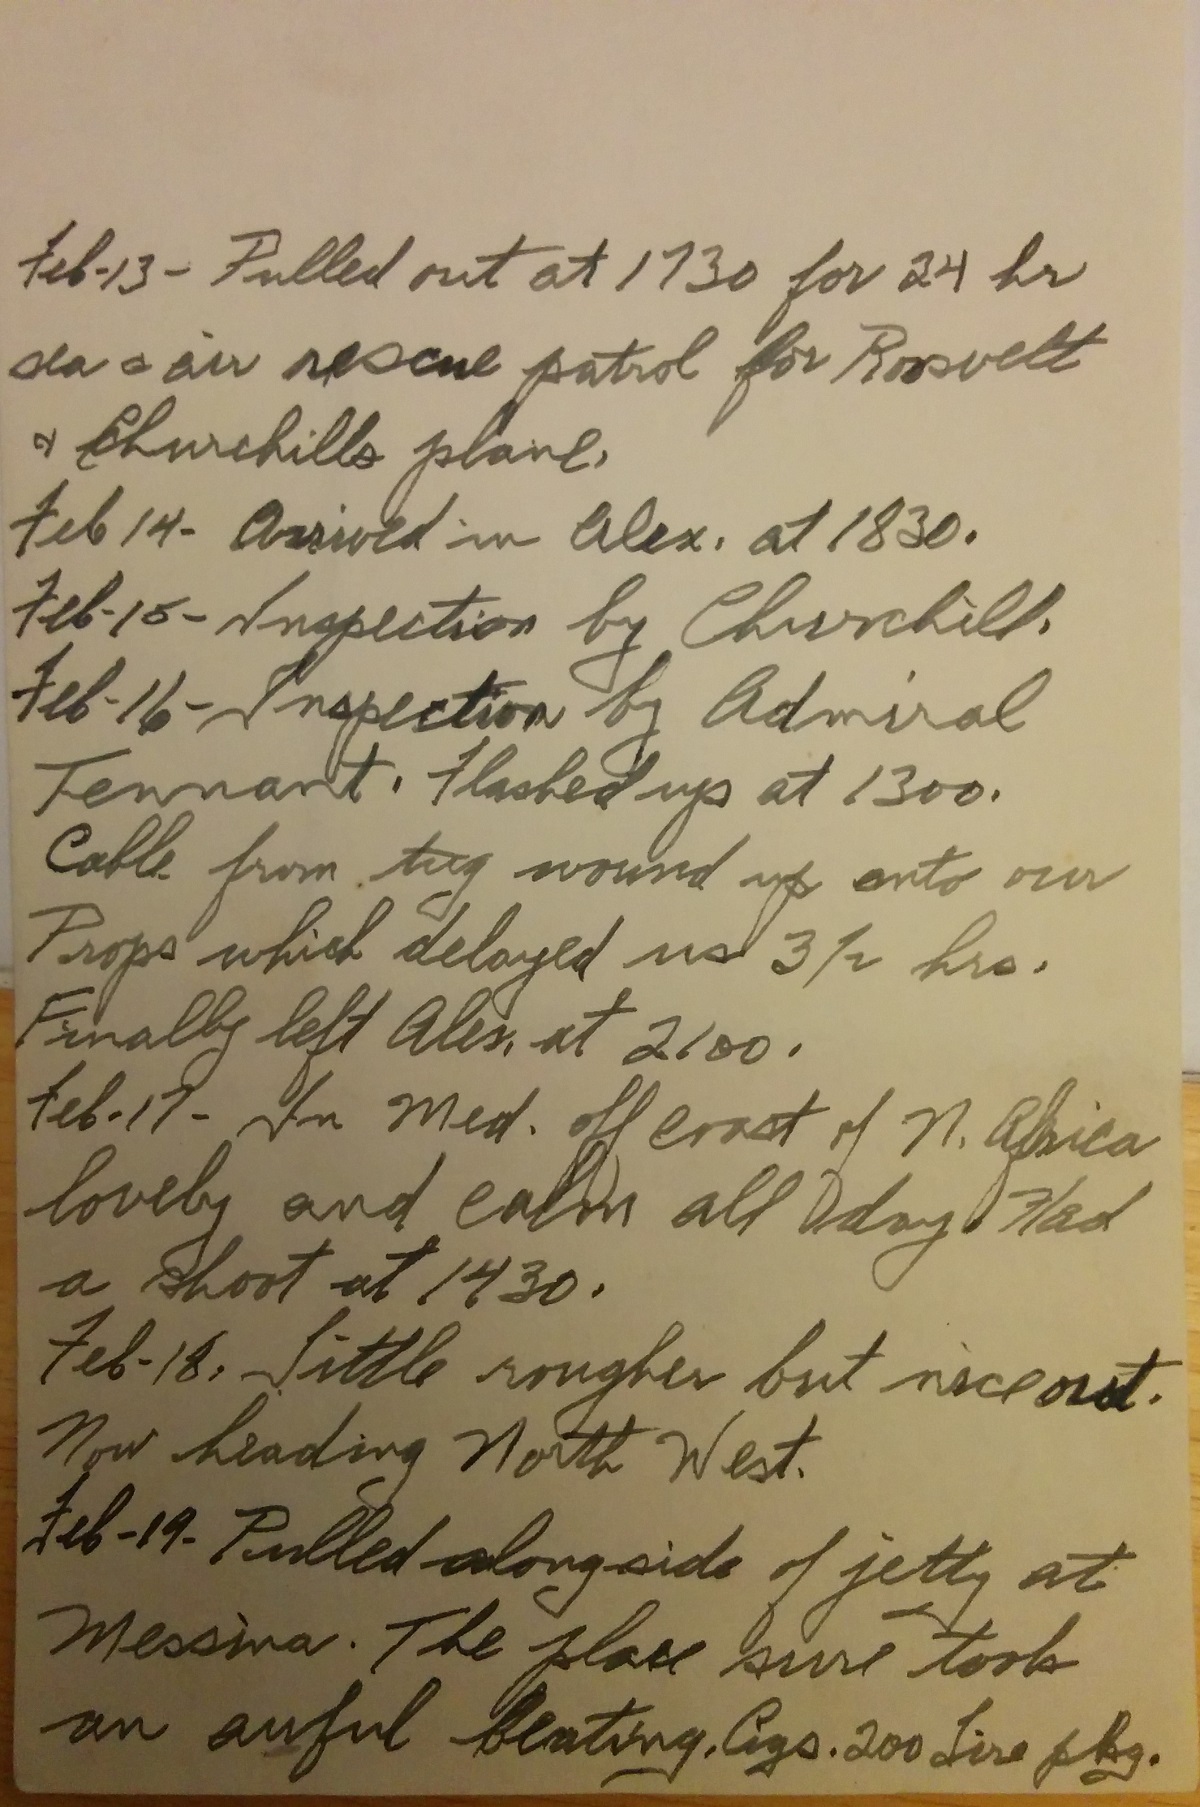 Feb-13- Pulled out at 1730 for 24 hr
sea & air rescue patrol for Roosvelt
& Churchills plane.
Feb 14- Arrived in Alex. at 1830.
Feb-15- Inspection by Churchill.
Feb-16- Inspection by Admiral
Tennant. Flashed up at 1300.
Cable from tug wound up onto our
Props which delayed us 3 1/2 hrs.
Finally left Alex. at 2100.
Feb-17- In Med. off coast of N. Africa
lovely and calm all day. Had
a shoot at 1430.
Feb-18. Little rougher but nice out.
Now heading North West.
Feb-19- Pulled alongside of jetty at
Messina. The place sure took
an awful beating. Cigs. 200 Lire pkg.